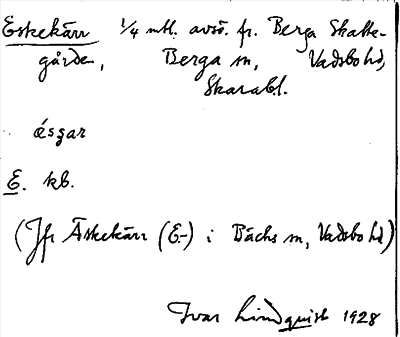 Eskekärr ¼ mtl. avsö. fr. Berga Skatte-
gården, Berga sn, Vadsbo hd,
Skarab.l.
éskar
E. kb.
(Jfr Äskekärr (E-) i Bäcks sn, Vadsbo hd)
Ivar Lindquist 1928